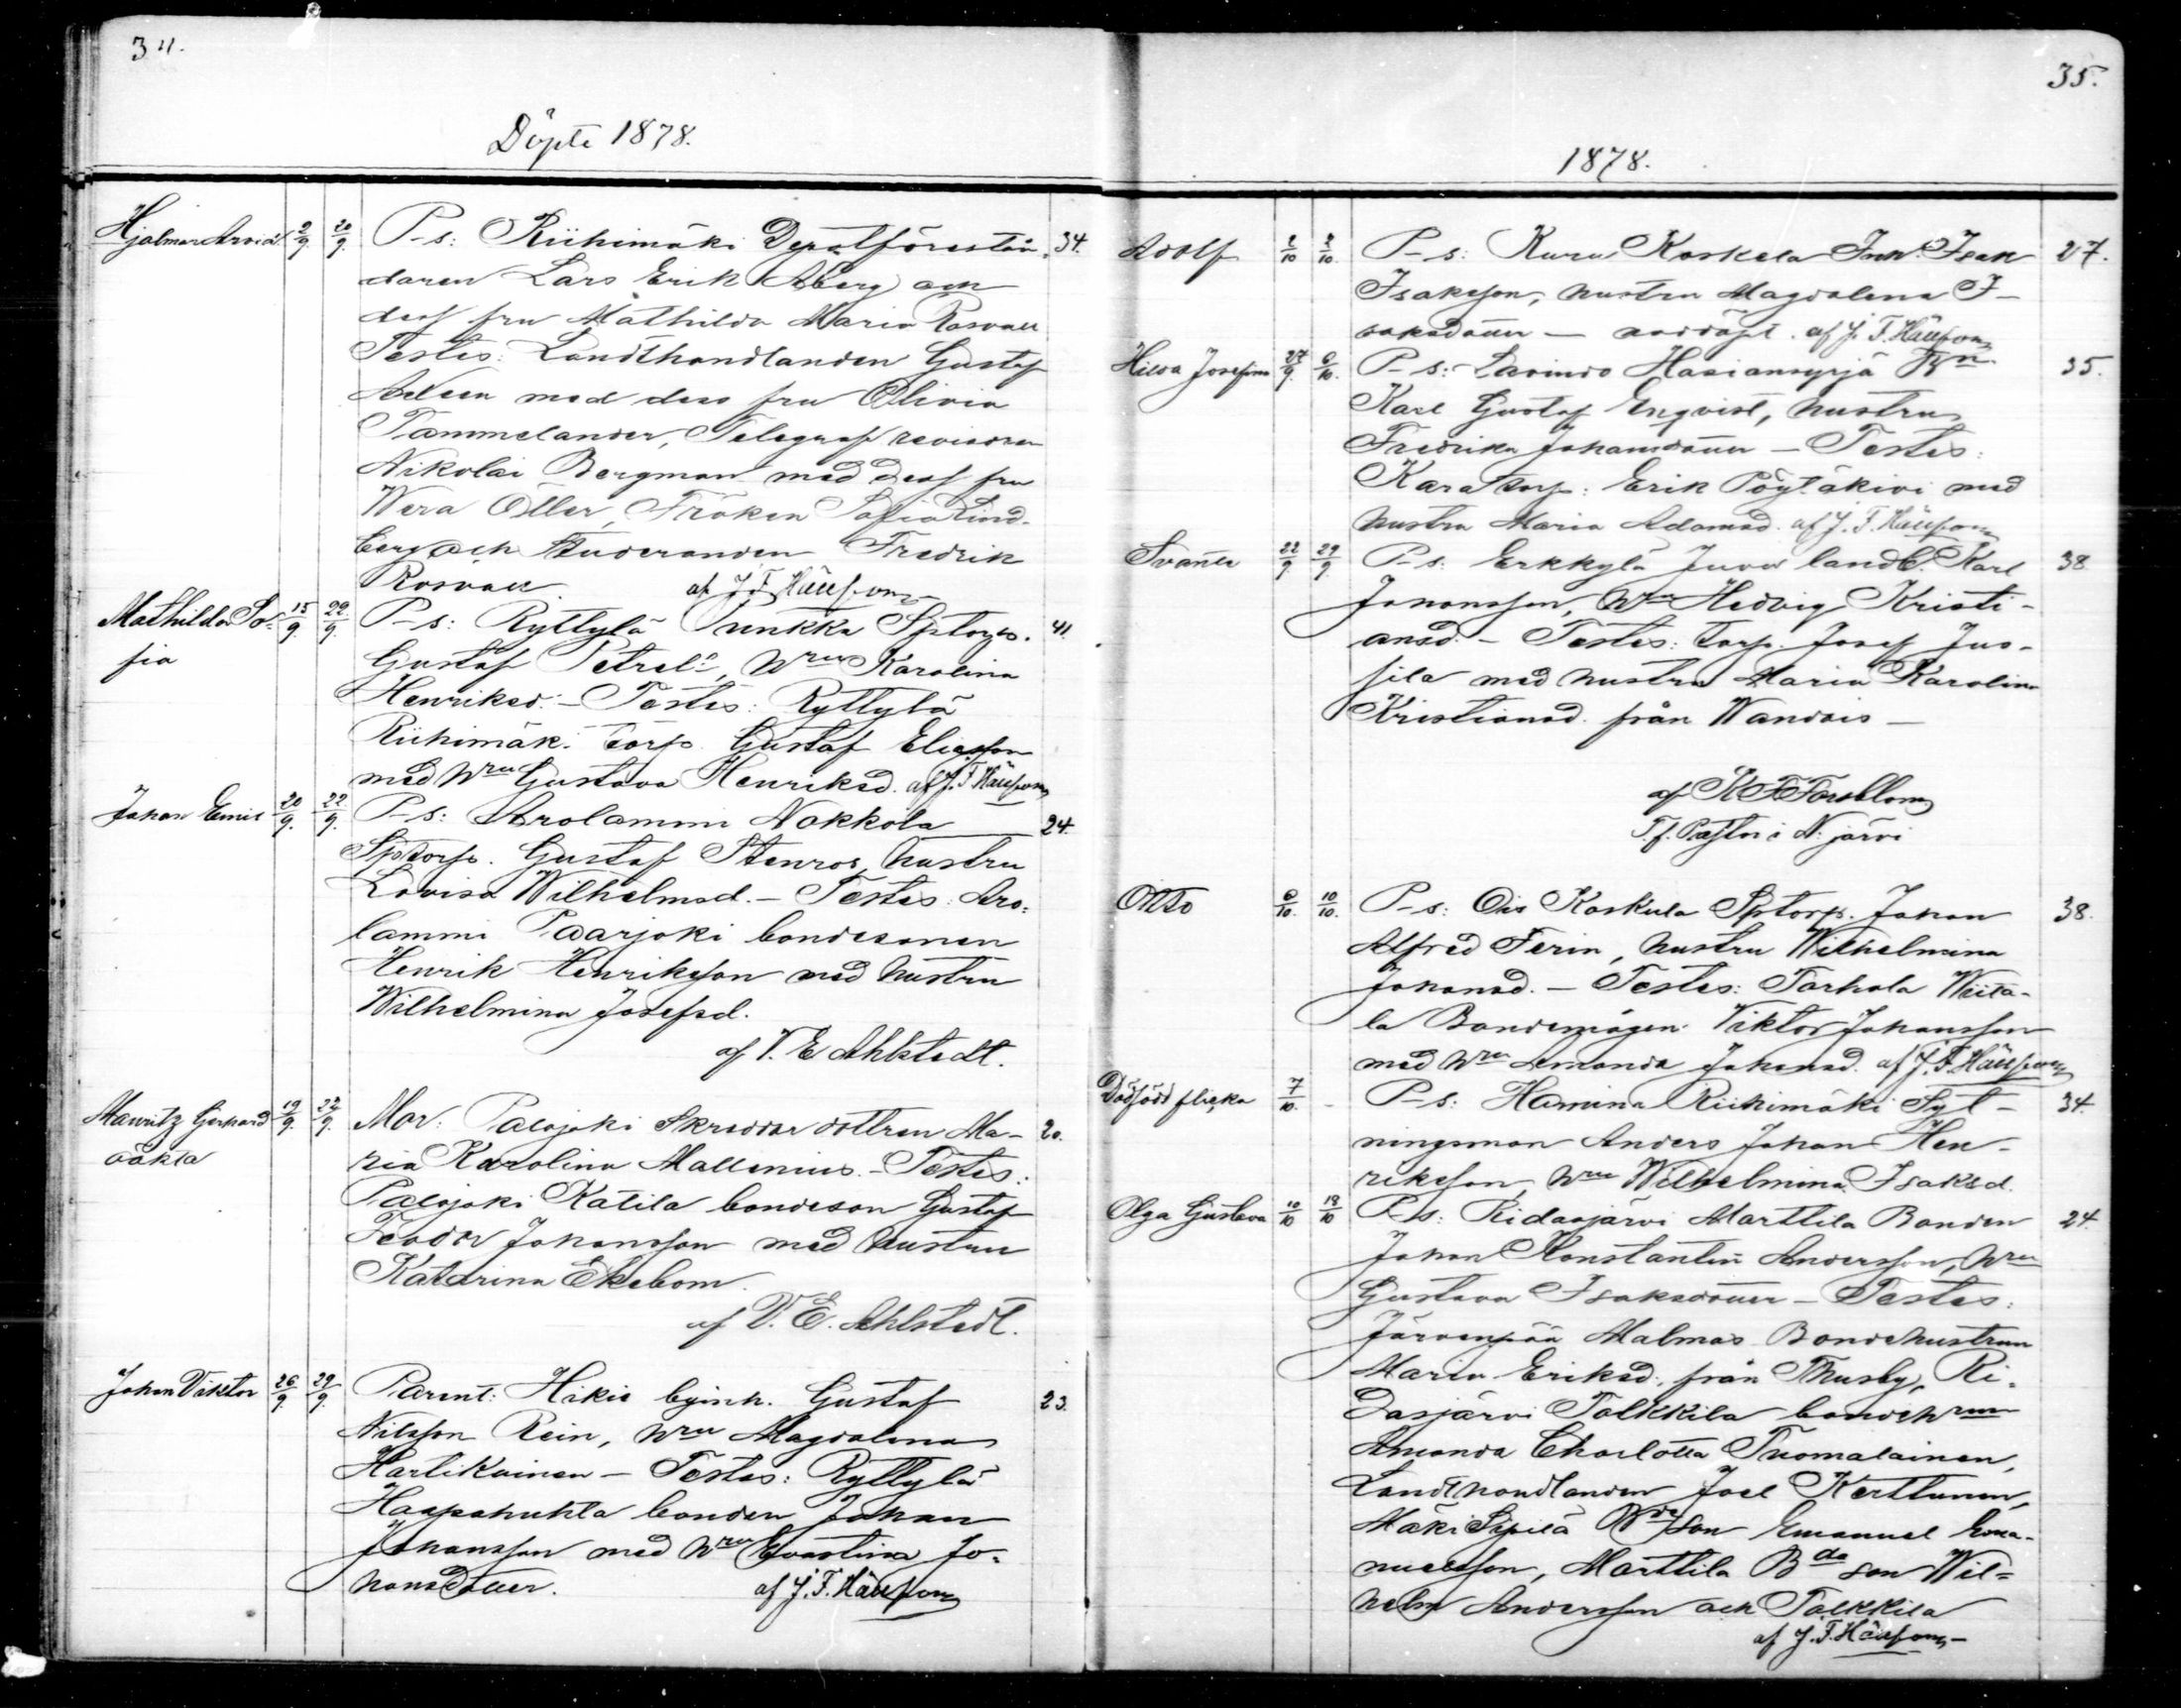 34.
Döpte 1878.
Hjalmar Arvid 2/9 20/9 P-s: Riihimäki Depotförestån- 34.
daren Lars Erik Åberg och
dess fru Mathilda Maria Rosvall
Testes: Landthandlanden Gustaf
med dess fru Olivia
Tammelander, Telegraf revisoren
Nikolai Bergman med dess fru
Wera Öller, Fröken Sofia Lind-
berg och Studeranden Fredrik
Rosvall. af J. F. Hällfors
Mathilda So- 15/9 22/9 P-s: Ryttylä Punkka Sptorp. 41.
fia Gustaf Petrel, Wru Karolina
Henriksd. - Testes: Ryttylä
Riihimäk. Torp. Gustaf Eliasson
med Wru Gustava Henriksd. af J. F. Hällfors
Johan Emil 20/9. 22/9. P-s: Arolammi Nokkola 24.
Sptorp. Gustaf Stenros, hustru
Lovisa Wilhelmsd. - Testes: Aro-
lammi Paarjoki bondesonen
Henrik Henriksson med hustru
Wilhelmina Josefsd.
af V. E Ahlstedt.
Mauritz Gerhard 19/9. 22/9. Mor: Palojoki Skreddar dottren Ma- 20.
oäkta ria Karolina Mallenius. - Testes:
Palojoki Katila bondeson Gustaf
Feodor Johansson med hustru
Katarina Ekebom.
af V. E. Ahlstedt.
Johan Viktor 26/9. 29/9. Parent: Hikiä byinh. Gustaf 23.
Nilsson Rein, Wru Magdalena
Hartikainen - Testes: Ryttylä
Haapahuhta bonden Johan
Johansson med Wru Evastina Jo-
hansdotter. af J. F. Hällfors
35.
1878.
Adolf 2/10 2/10. P-s: Kuru Koskela Inh. Isak 27.
Isaksson, hustru Magdalena I-
saksdotter - nöddöpt. af J. F. Hällfors
Hilda Josefina 27/9. 6/10. P-s: Lavinto Hasiansyrjä 35.
Karl Gustaf Enqvist, hustru
Fredrika Johansdotter - Testes:
Kara torp: Erik Pöytäkivi med
hustru Maria Adamsd. af J. F. Hällfors
Svante 22/9. 29/9. P-s: Erkkylä Juva landb. Karl 38
Johansson, Wru Hedvig Kristi-
ansd. - Testes: Torp. Josef Jus-
sila med hustru Maria Karolina
Kristiansd. från Wandais -
af K F Forsblom
T. f. Pastor i N. järvi
Otto 6/10. 10/10. P-s: Ois Koskula Sptorp. Johan 38.
Alfred Ferin, hustru Wilhelmina
Johansd. - Testes: Torhola Wiita-
la Bondemågen Viktor Johansson
med Wru Amanda Johansd. af J. F. Hällfors
Dödfödd flicka 7/10. - P-s: Hamina Riihimäki Syt- 34.
ningsman Anders Johan Hen-
riksson, Wru Wilhelmina Isaksd.
Olga Gustava 10/10 13/10 P-s: Ridasjärvi Marttila Bonden 24.
Johan Konstantin Andersson, Wru
Gustava Isaksdotter - Testes:
Järvenpää Malmas Bondehustrun
Maria Eriksd. från Thusby, Ri-
dasjärvi Tolkkila bondeWrun
Amanda Charlotta Tuomalainen,
Landthandlanden Joel Kerttunen,
Mäki Sipilä son Emanuel Ema-
nuelsson, Marttila Bde son Wil-
helm Andersson och Tolkkila
af J. F. Hällfors -